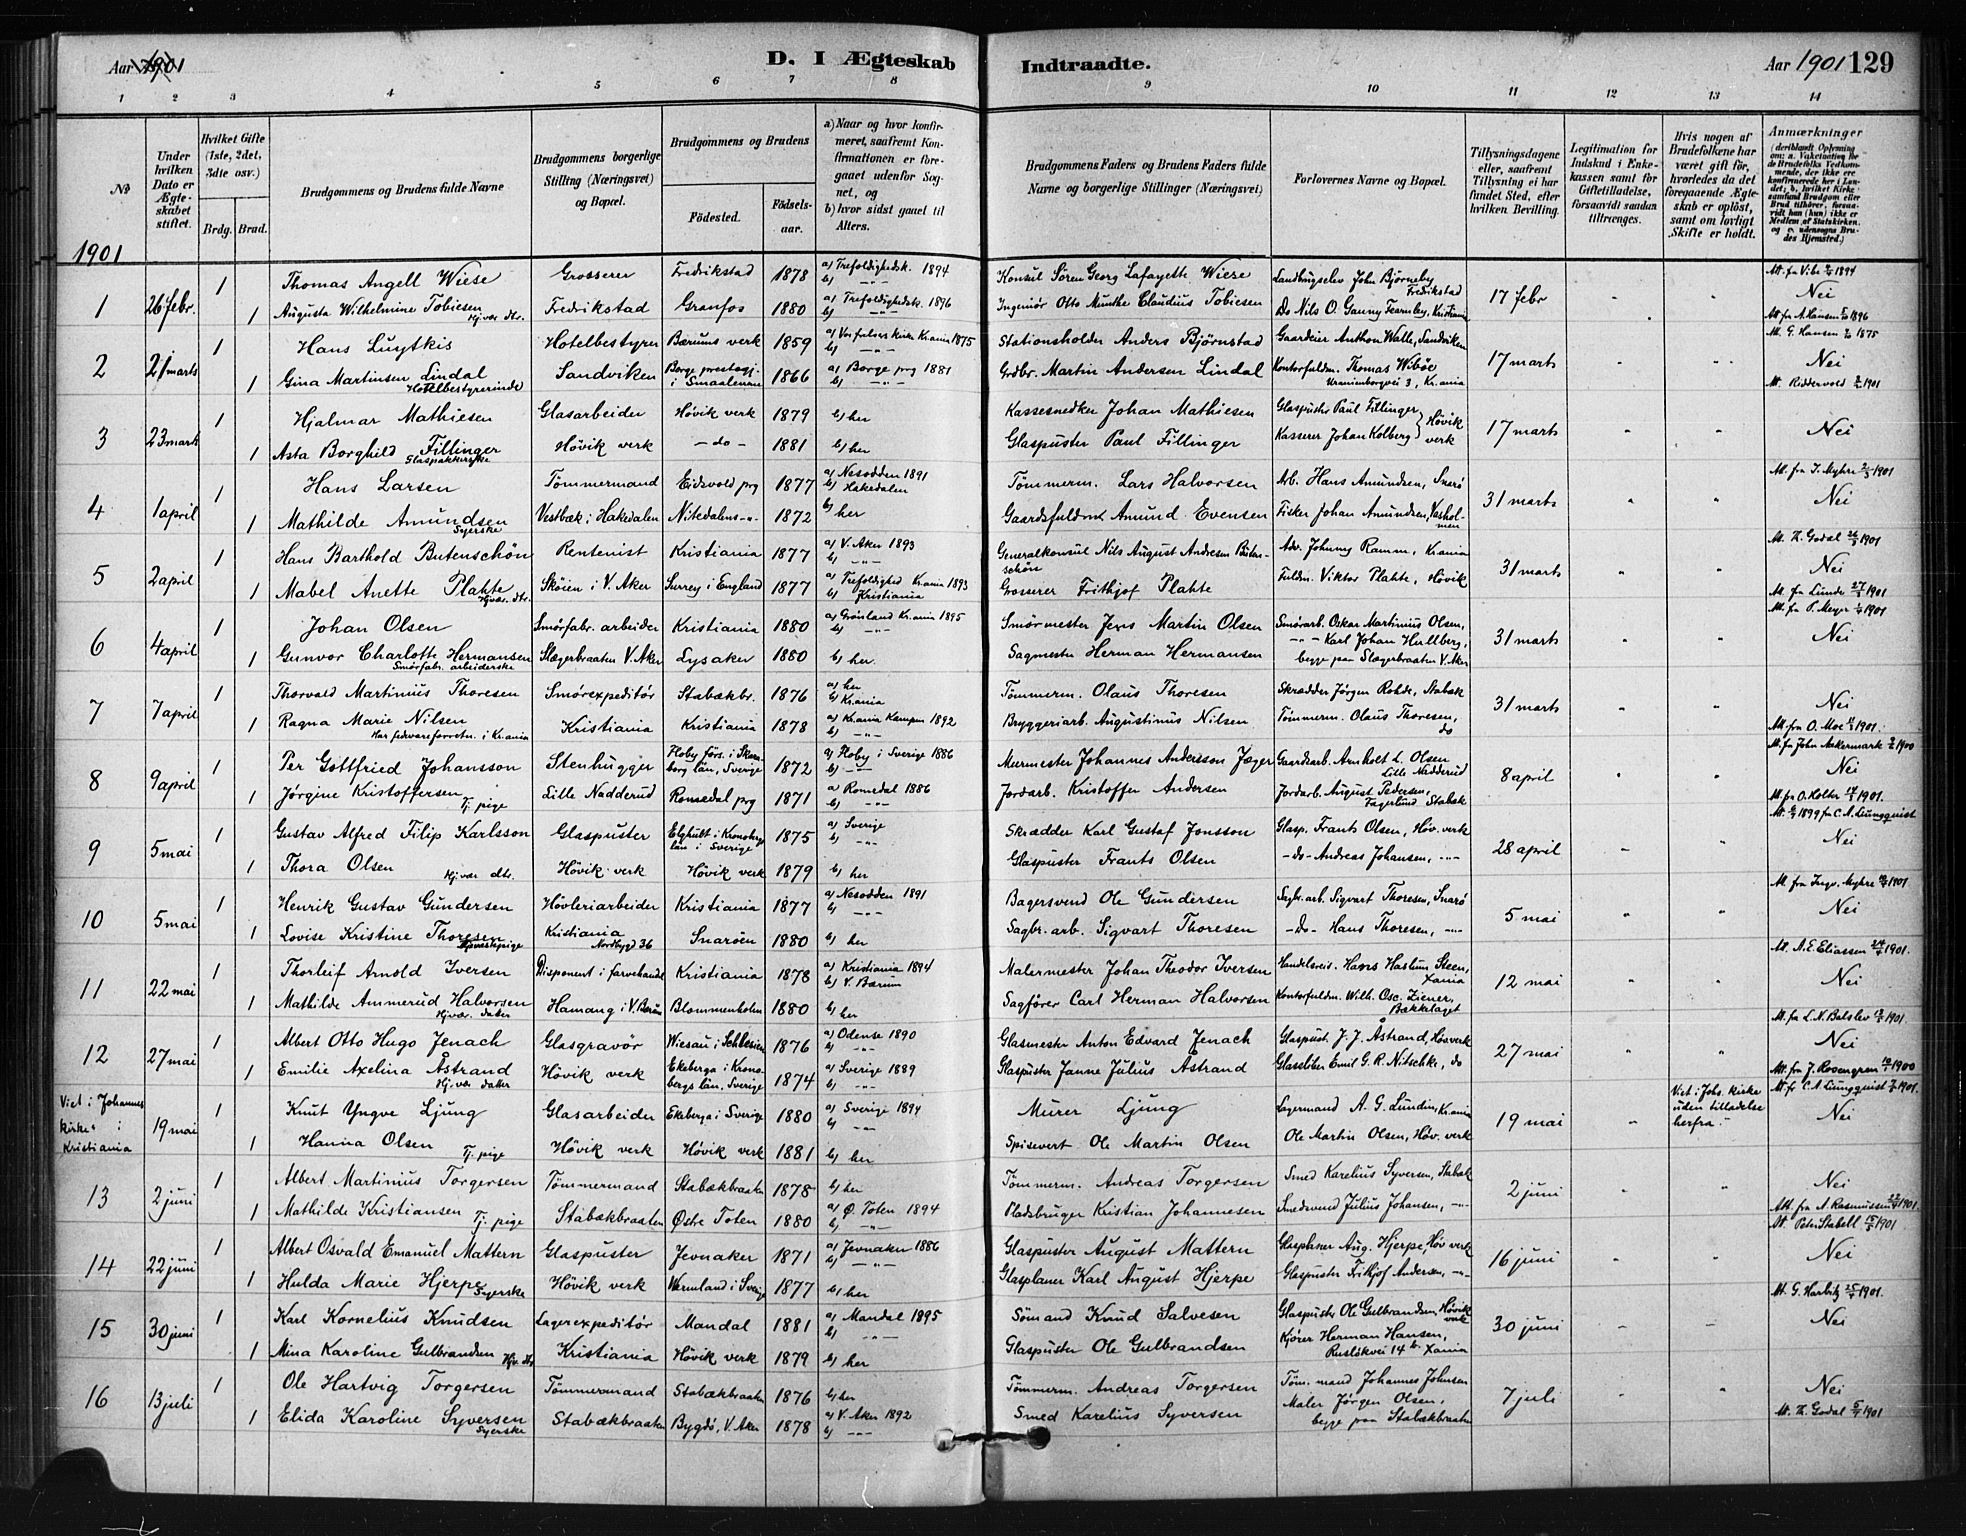 Aar 1901
D. I Ægteskab Indtraadte.
Aar 1901 129
1 2 3 4 5 6 7 8 9 10 11 12 13 14
No
Under hvilken Dato er Ægteskabet stiftet.
Hvilket Gifte (1ste, 2det, 3die osv.)
Brdg. Brud.
Brudgommens og Brudens fulde Navne
Brudgommens borgerlige Stilling (Næringsvei) og Bopæl.
Brudgommens og Brudens
Födested.
Födsels-aar.
a) Naar og hvor konfirmeret, saafremt Konfirmationen er foregaaet udenfor Sognet, og
b) hvor sidst gaaet til Alters.
Brudgommens Faders og Brudens Faders fulde Navne og borgerlige Stillinger (Næringsvei)
Forlovernes Navne og Bopæl.
Tillysningsdagene eller, saafremt Tillysning ei har fundet Sted, efter hvilken Bevilling.
Legitimation for Indskud i Enkekassen samt for Giftetilladelse, forsaavidt saadan tiltrænges.
Hvis nogen af Brudefolkene har været gift før, hvorledes da det foregaaende Ægteskab er oplöst, samt om lovligt Skifte er holdt.
Anmærkninger (deriblandt Oplysning om: a. Vakcination for de Brudefolks Vedkommende, der ikke ere konfirmerede her i Landet; b. hvilket Kirkesamfund Brudgom eller Brud tilhörer, forsaavidt han (hun) ikke er Medlem af Statskirken, og c. udensogns Brudes Hjemsted.)
1901
1 26 febr. 1 Thomas Angell Wiese Grosserer Fredrikstad 1878 a) Trefoldighedsk. 1894 Konsul Sören Georg Lafayette Wiese Landhugselev John Björneby Fredrikstad 17 febr " " Att. fra Vibe 1894
1 Augusta Wilhelmine Tobiesen Hj.vær. dtr. Fredrikstad Granfos 1880 a) Trefoldighedsk. 1896 b) -"- Ingeniör Otto Munthe Claudius Tobiesen Do Nils O. Gunny Fearnley, Kristiania Nei Att. fra A. Hansen 1896
2 21 marts 1 Hans Luytkis Hotelbestyrer Bærums verk 1859 a) Vor frelsers kirke Kr.ania 1875 b) -"- Stationsholder Anders Björnstad Gaardeier Anthon Walle, Sandviken 17 marts " " Att. G. Hansen 1875
1 Gina Martinsen Lindal Hotelbestyrerinde Sandviken Borge prestegj. i Smaalenene 1866 a) Borge prg 1881 b) -"- Grdbr. Martin Andersen Lindal Kontorfuldm. Thomas Wibóe Uranienborgvei 3, Kr.ania Nei Att. Riddervold 1901
3 23 marts 1 Hjalmar Mathiesen Glasarbeider Hövik verk 1879 b) her Kassesnedker Johan Mathiesen Glaspuster Paul Fillinger 17 marts " " Nei
1 Asta Borghild Fillinger Glaspakkerske Hövik verk - do - 1881 b) her Glaspuster Paul Fillinger Kasserer Johan Kolberg } Hövik verk
4 1 april 1 Hans Larsen Tömmermand Eidsvold prg 1877 a) Nesodden 1891 b) Hakedalen Tömmerm. Lars Halvorsen Arb. Hans Amundsen, Snarö 31 marts " " Att. fra I. Myhre 1901
1 Mathilde Amundsen Syerske Vestbæk i Hakedalen Nitedalens -"- 1872 b) her Gaardsfuldm. Amund Evensen Fisker Johan Amundsen, Vasholmen Nei
5 2 april 1 Hans Barthold Butenschön Rentenist Kristiania 1877 a) V. Aker 1893 b) -"- Generalkonsul Nils August Andresen Butenschön Adv. Johnny Ramm, Kr.ania 31 marts " " Att. Th. Godal 1901
1 Mabel Anette Plahte Hj.vær. dtr. Sköien i V. Aker Surrey i England 1877 a) Trefoldighed Kr.ania 1893 b) Kristiania Grosserer Frithjof Plahte Fuldm. Viktor Plahte, Hövik Nei Att. fra Lunde 27/3 1901
6 4 april 1 Johan Olsen Smörfabr. arbeider Kristiania 1880 a) Grönland Kr.ania 1895 b) -"- Smörmester Jens Martin Olsen Smörarb. Oskar Martinius Olsen, 31 marts " " Att. fra P. Meyer 1901
1 Gunvor Charlotte Hermansen Smörfabr. arbeiderske Slægerbraaten V. Aker Lysaker 1880 b) her. Sagmester Herman Hermansen -"- Karl Johan Hellberg, begge paa Slægerbraaten V. Aker Nei
7 7 april 1 Thorvald Martinius Thoresen Smörexpeditör Stabækbr. 1876 a) her b) Kr.ania Tömmerm. Olaus Thoresen Skrædder Jörgen Rohde, Stabæk 31 marts " " Nei
1 Ragna Marie Nilsen Har fedevareforretn. i Kr.ania Kristiania Kristiania 1878 a) Kr.ania Kampen 1892 b) -"- Bryggeriarb. Augustinus Nilsen Tömmerm. Olaus Thoresen, do Att. fra O. Moe 1901.
8 9 april 1 Per Gottfried Johansson Stenhugger Floby förs. i Skaraborg län, Sverige 1872 a) Floby i Sverige 1886 b) -"- Murmester Johannes Andersson Jæger Gaardsarb. Arnholt L. Olsen Lille Nadderud 8 april " " Att. fra John Askermark 1900
1 Jörgine Kristoffersen Tj. pige Lille Nadderud Romedal prg 1871 a) Romedal 1886 b) -"- Jordarb. Kristoffer Andersen Jordarb. August Pedersen, Fagerlund Stabæk Nei Att. fra O. Holter 1901.
9 5 mai 1 Gustav Alfred Filip Karlsson Glaspuster Elghult i Kronobergs län i Sverige 1875 a) Sverige b) -"- Skrædder Karl Gustaf Jonsson Glasp. Frants Olsen, Höv. verk 28 april " " Att. 1899 fra C. A. Ljungquist
1 Thora Olsen Hj.vær dtr. Hövik verk Hövik verk 1879 b) her Glaspuster Frants Olsen - do - Andreas Johansen, -"- Nei
10 5 mai 1 Henrik Gustav Gundersen Hövleriarbeider Kristiania 1877 a) Nesodden 1891 b) -"- Bagersvend Ole Gundersen Sagbr. arb. Sigvart Thoresen, Snarö 5 mai " " Att. fra Ingv. Myhre 1901
1 Lovise Kristine Thoresen Tjenestepige Kristiania Nordbygd 36 Snaröen 1880 b) her Sagbr. arb. Sigvart Thoresen - Do - Hans Thoresen, -"- Nei
11 22 mai 1 Thorleif Arnold Iversen Disponent i farvehandel Kristiania 1878 a) Kristiania 1894 b) V. Bærum Malermester Johan Theodor Iversen Handelsreis. Hans Haslum Steen, Xania 12 mai " " Att. A. E. Eliassen 1901.
1 Mathilde Ammerud Halvorsen Hj.vær. datter Hamang i V. Bærum Blommenholm 1880 b) her Sagförer Carl Herman Halvorsen Kontorfuldm. Wilh. Osc. Ziener, Bækkelaget Nei
12 27 mai 1 Albert Otto Hugo Jenach Glasgravör Wiesau i Schlesien 1876 a) Odense 1890 b) -"- Glasmester Anton Edvard Jenach Glaspust. J. J. Åstrand, Hövverk 27 mai " " Att. fra L. N. Balslev 1901.
1 Emilie Axelina Åstrand Hj.vær datter Hövik verk Ekeberga i Kronobergs län, Sverige 1874 a) Sverige 1889 b) -"- Glaspuster Janne Julius Åstrand Glassliber Emil G. R. Nitschke, do Nei Att. fra J. Rosengren 1900
Viet i Johannes kirke i Kristiania 19 mai 1 Knut Yngve Ljung Glasarbeider Ekeberga i Sverige 1880 a) Sverige 1894 b) -"- Murer Ljung Lagermand A. G. Lundin, Kr.ania 19 mai " Viet i Johs. kirke uden tilladelse herfra. Att. fr C. A. Ljungquist 1901.
1 Hanna Olsen Tj. pige Hövik verk Hövik verk 1881 b) her Spisevert Ole Martin Olsen Ole Martin Olsen, Höv. verk Nei
13 2 juni 1 Albert Martinius Torgersen Tömmermand Stabækbraaten 1878 b) her Tömmerm. Andreas Torgersen Smed Karelius Syversen, Stabæk 2 juni " " Nei
1 Mathilde Kristiansen Tj. pige Stabækbraaten Østre Toten 1880 a) Ø. Toten 1894 b) -"- Pladsbruger Kristian Johannesen Smedsvend Julius Johansen, -"- Att. fra A. Rasmussen 1901
14 22 juni 1 Albert Osvald Emanuel Mattern Glaspuster Jevnaker 1871 a) Jevnaker 1886 b) -"- Glaspuster August Mattern Glasplaner Aug. Hjerpe, Höv verk 16 juni " " Att. Peter Stabell 1901
1 Hulda Marie Hjerpe Syerske Hövik verk Wermland i Sverige 1877 b) her Glasplaner Karl August Hjerpe Glaspuster Frithjof Andersen, -"- Nei
15 30 juni 1 Karl Kornelius Knudsen Lagerexpeditör Mandal 1881 a) Mandal 1895 b) -"- Sömand Knud Salvesen Glaspuster Ole Gulbrandsen, Hövik verk 30 juni " " Att. G. Harbitz 1901.
1 Mina Karoline Gulbrandsen Hjv. dtr Kristiania Hövik verk 1879 b) her Glaspuster Ole Gulbrandsen Kjörer Herman Hansen, Ruslökvei 14 b. Xania Nei
16 13 juli 1 Ole Hartvig Torgersen Tömmermand Stabækbraaten 1876 b) her Tömmerm. Andreas Torgersen Töm. mand Johannes Johnsen 7 juli " " Nei
1 Elida Karoline Syversen Syerske Stabækbraaten Bygdö, V. Aker 1878 a) V. Aker 1892 b) -"- Smed Karelius Syversen Maler Jörgen Olsen, begge paa Stabækbraaten Att. Th. Godal 1901